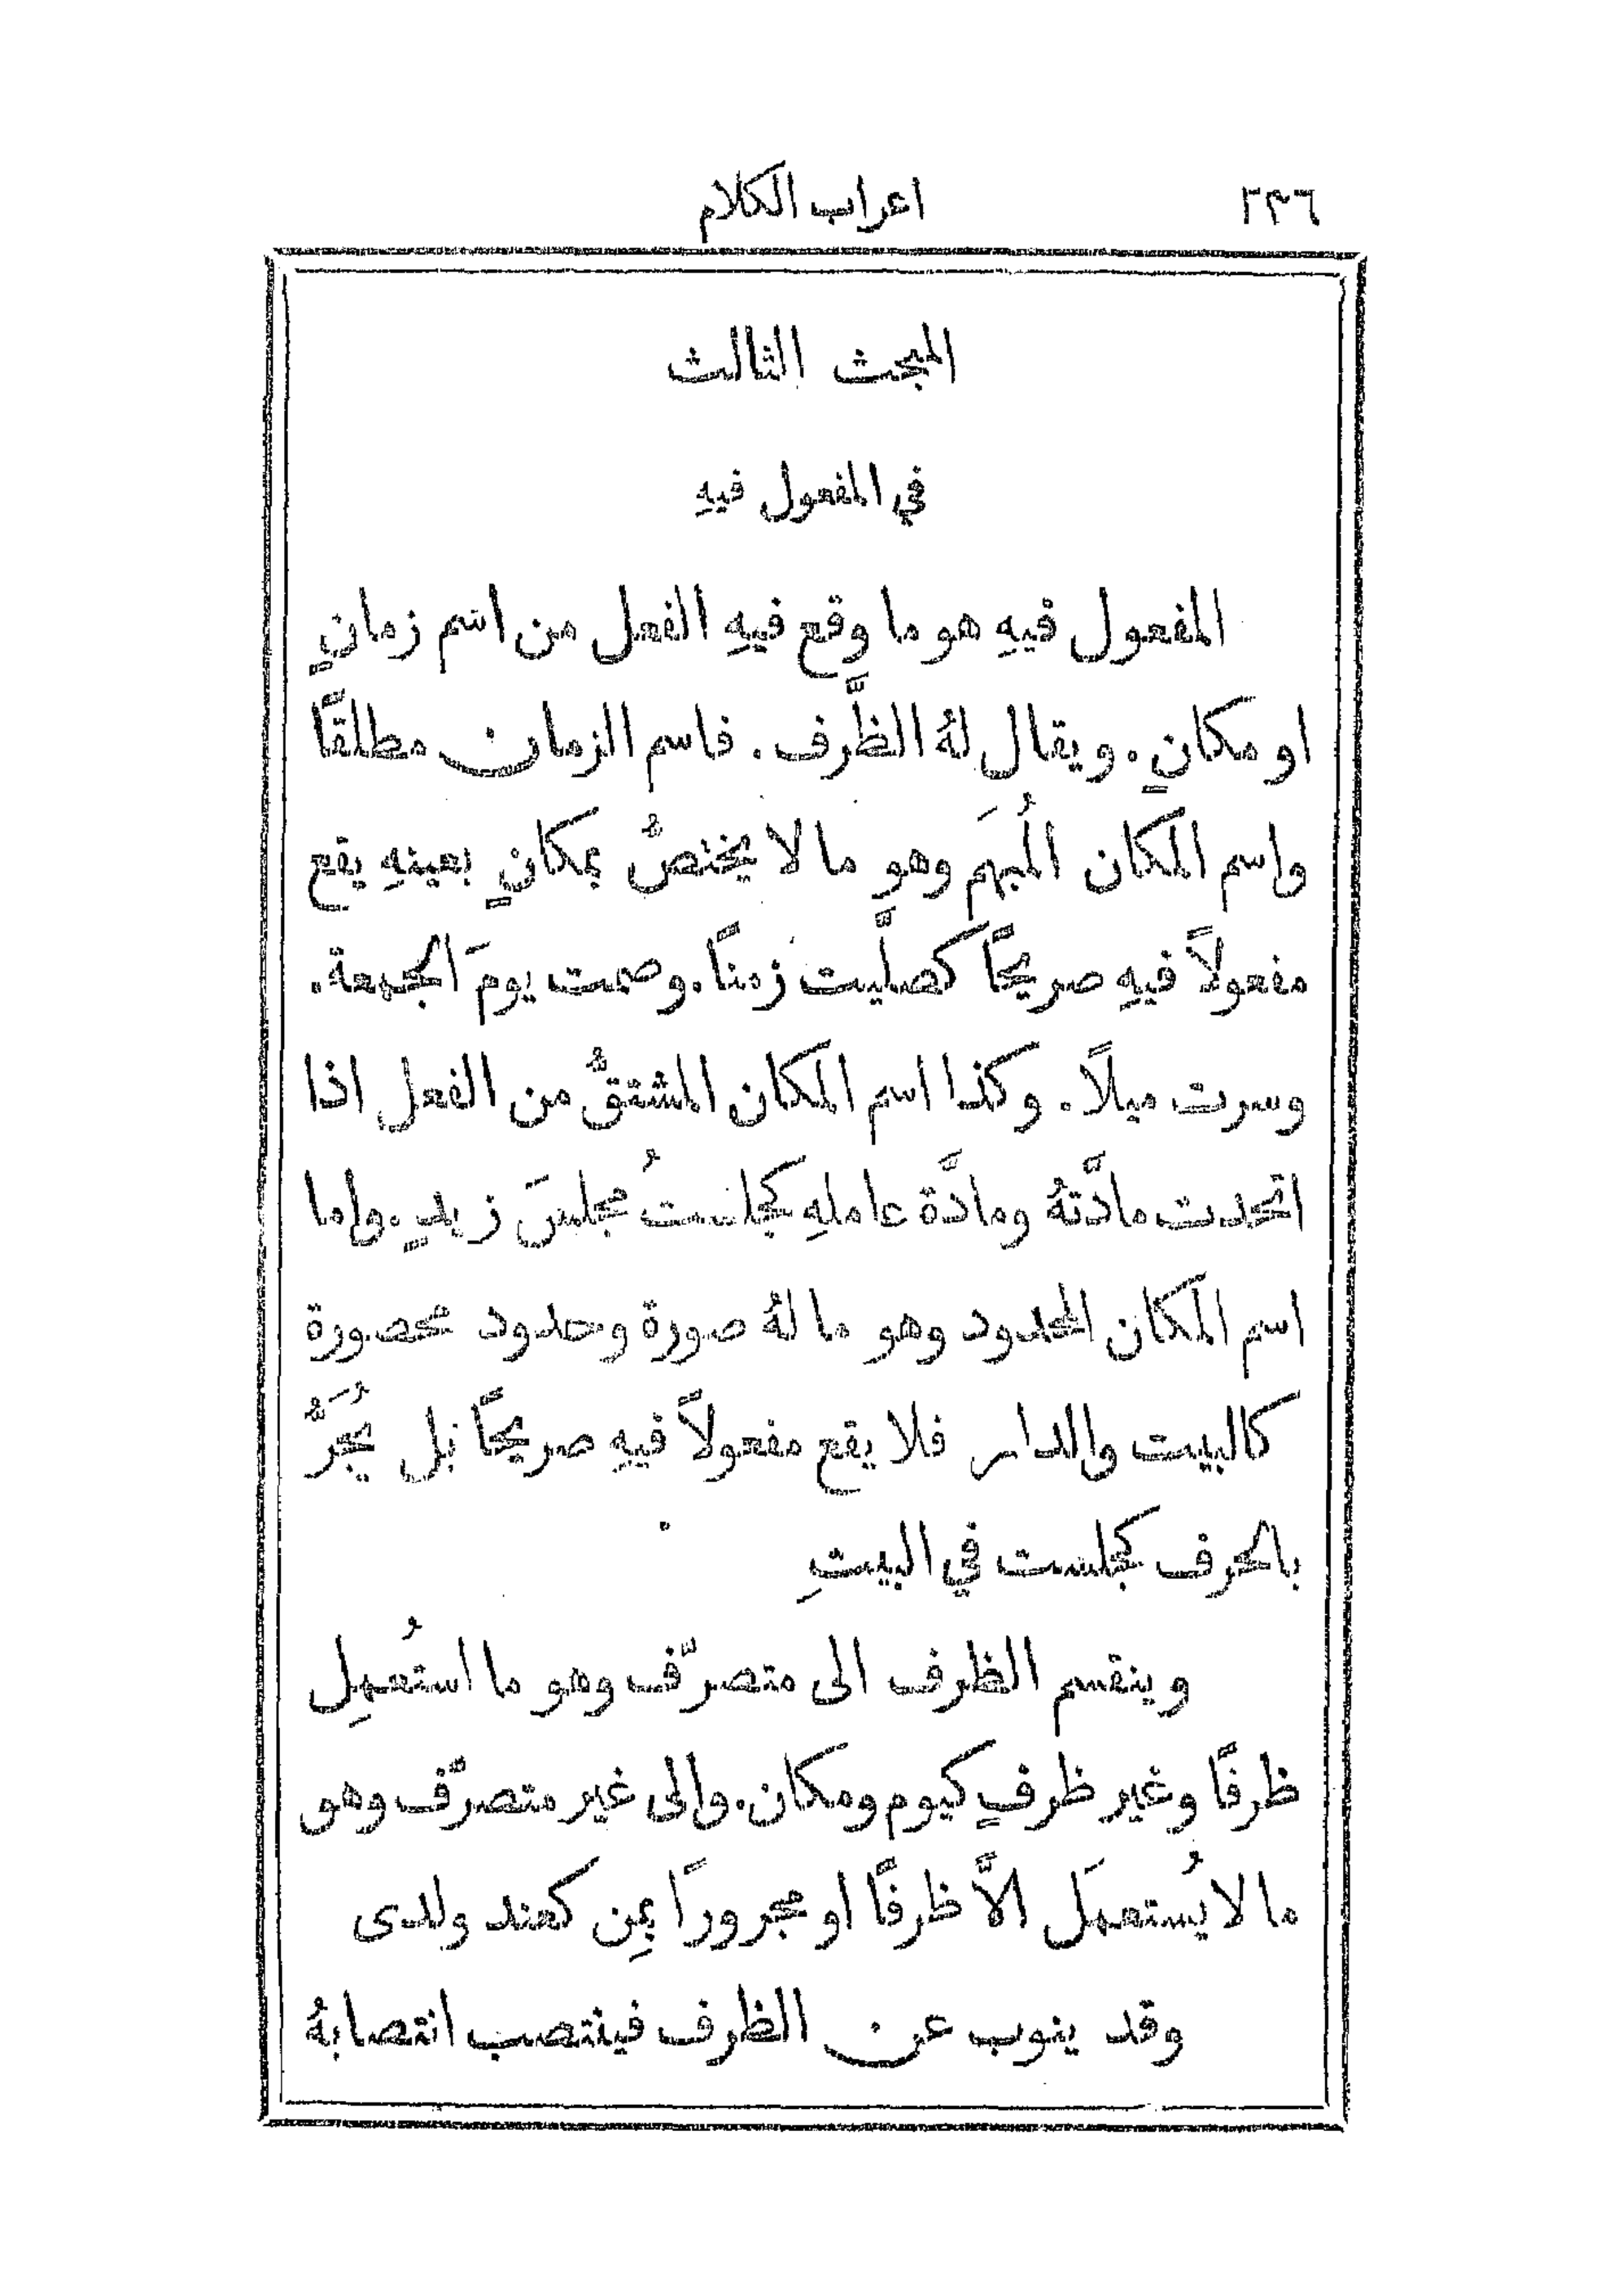 ٢٤٦
اعراب الكلام
المبحث الثالث
في المفعول فيهِ
المفعول فيهِ هو ما وقع فيهِ الفعل من اسم زمانٍ
او مكانٍ. ويقال لهُ الظَّرف. فاسم الزمان مطلقًا
واسم المكان المُبهَم وهو ما لا يختصُّ بمكانٍ بعينهِ يقع
مفعولاً فيهِ صريحًا كصلَّيت زمنًا. وصمت يومَ الجمعة.
وسرت ميلاً. وكذا اسم المكان المشتقُّ من الفعل اذا
اتحدت مادَّتهُ ومادَّة عاملهِ كجلستُ مجلسَ زيدٍ. واما
اسم المكان المحدود وهو ما لهُ صورة وحدود محصورة
كالبيت والدار فلا يقع مفعولاً فيهِ صريحًا بل يُجَرُّ
بالحرف كجلست في البيتِ
وينقسم الظرف الى متصرّف وهو ما استُعمِل
ظرفًا وغير ظرفٍ كيوم ومكان. والى غير متصرّف وهو
ما لا يُستعمَل الاَّ ظرفًا او مجرورًا بمِن كعند ولدى
وقد ينوب عن الظرف فينتصب انتصابهُ